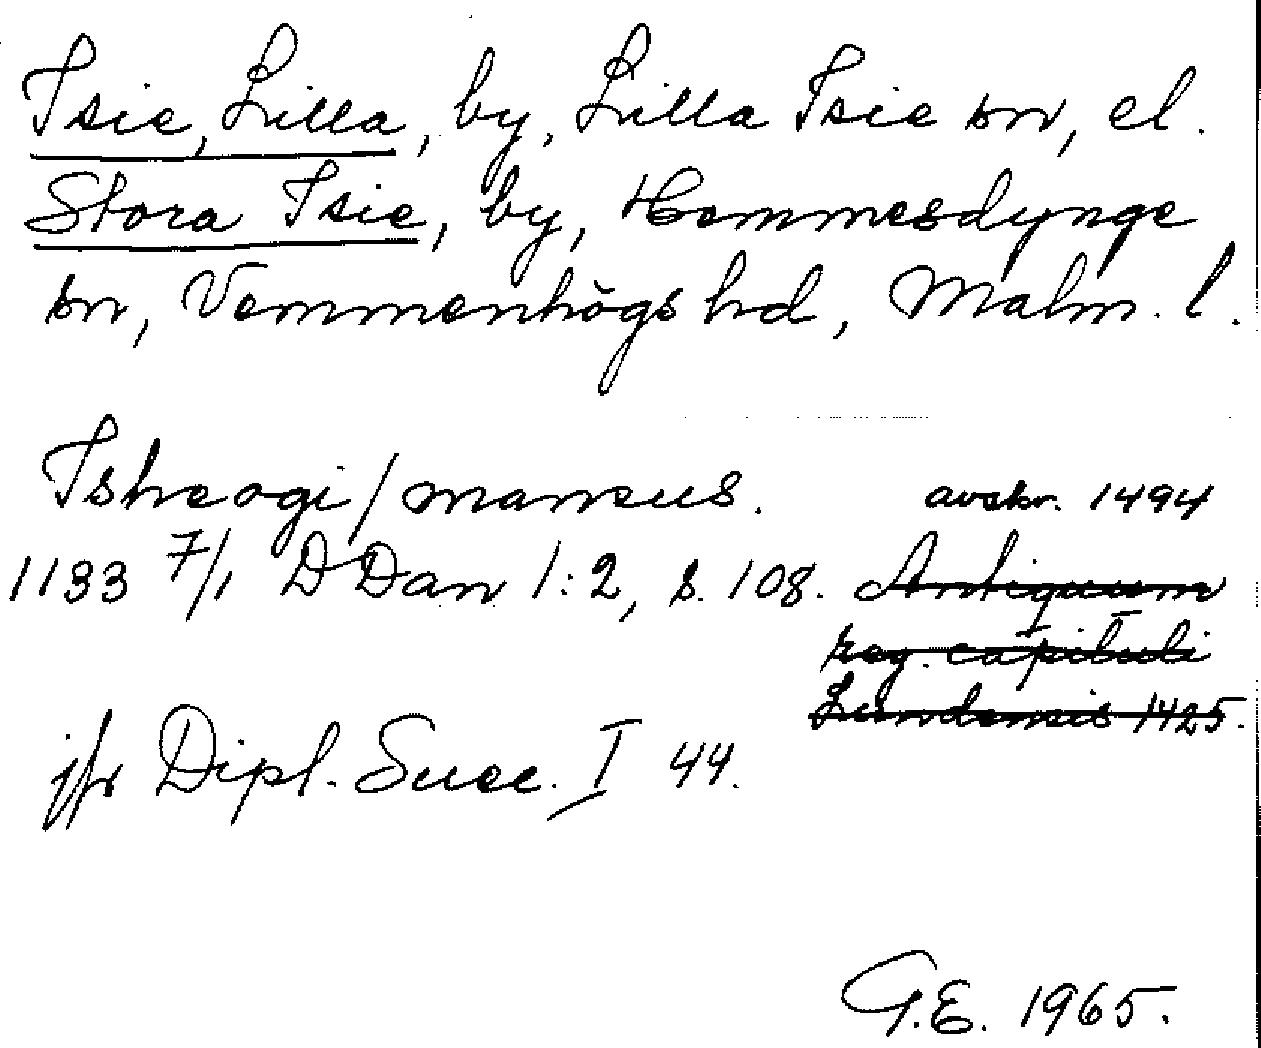 Isie, Lilla, by, Lilla Isie sn, el.
Stora Isie, by, Hemmesdynge
sn, Vemmenhögs hd, Malm. l.
Ishœogi/mansus. avskr. 1494
1133 7/1 DDan 1:2, s. 108. Antiquum
reg. capituli
Lundensis 1425.
jfr Dipl. Suec. I 44.
G.E. 1965.